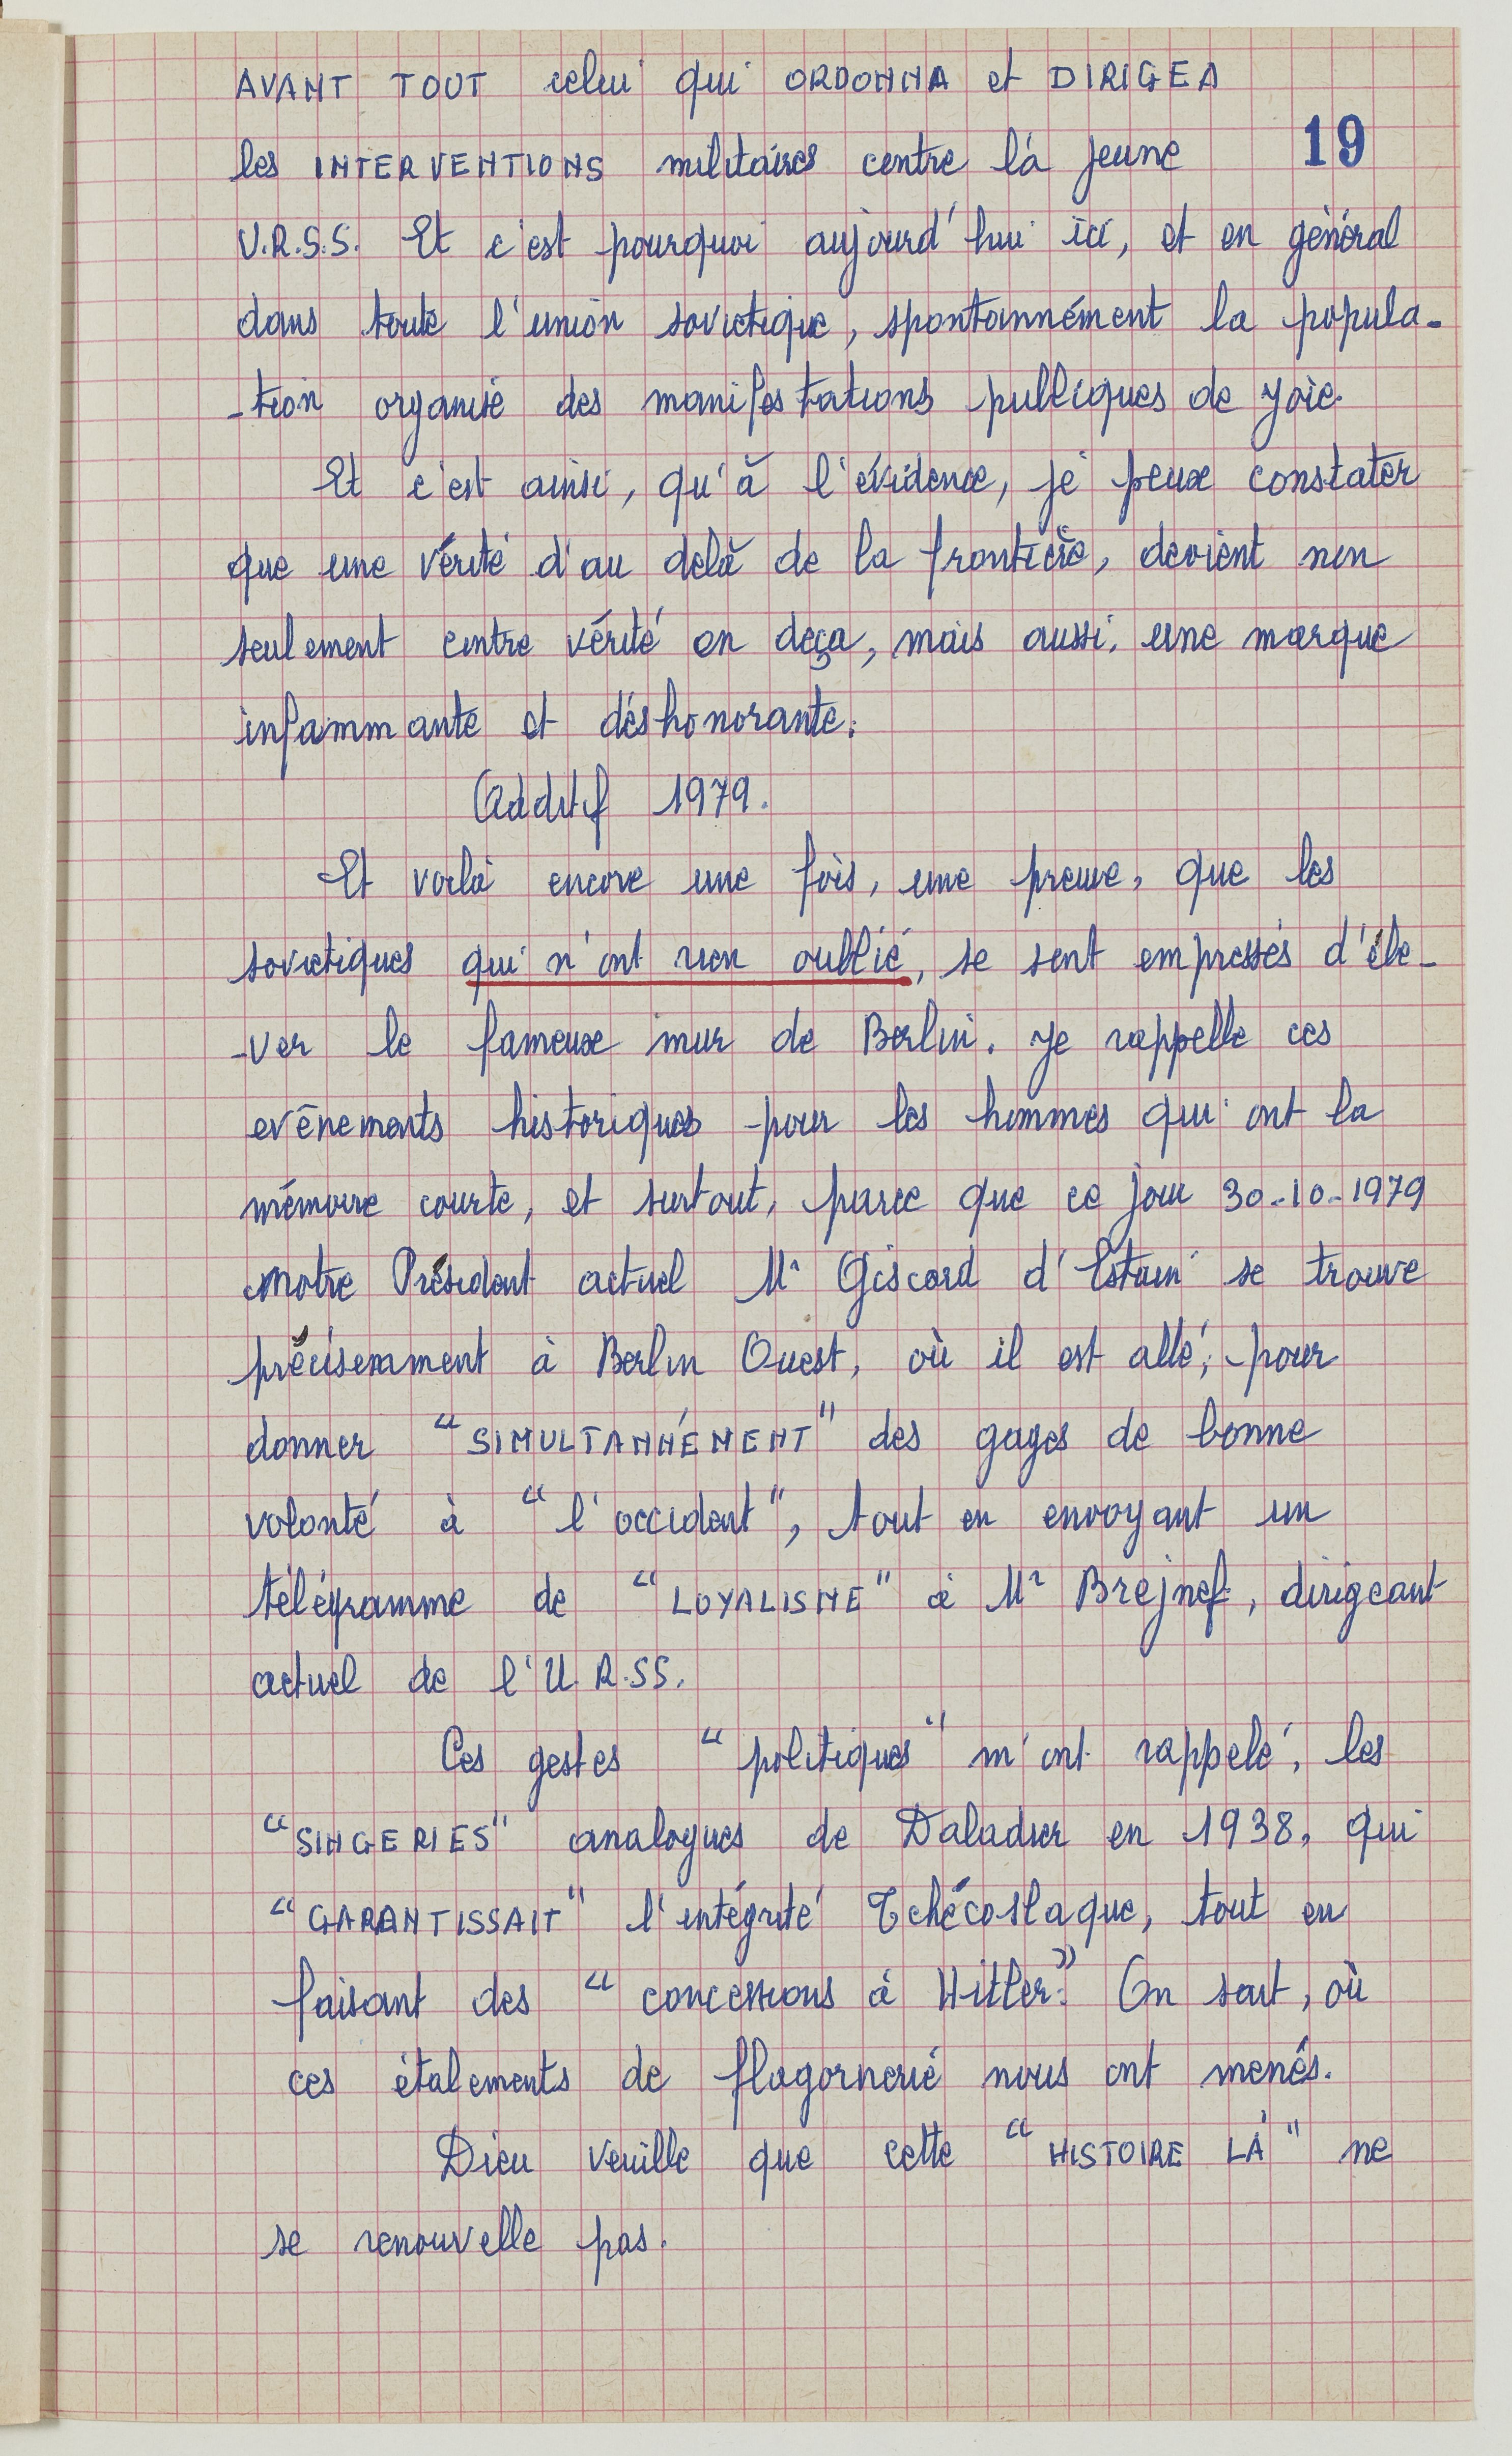 AVANT TOUT celui qui ORDONNA et DIRIGEA
les INTERVENTIONS militaires contre la jeune 19
U.R.S.S. Et c'est pourquoi aujourd'hui ici, et en général
dans toute l'union soviétique, spontannément la popula-
-tion organise des manifestations publiques de joie.
Et c'est ainsi, qu'à l'évidence, je peux constater
que une vérité d'au delà de la frontière, devient non
seulement contre vérité en deça, mais aussi, une marque
infammante et déshonorante.
Additif 1979.
Et voilà encore une fois, une preuve, que les
soviétiques qui n'ont rien oublié, se sont empressés d'éle-
-ver le fameux mur de Berlin. Je rappelle ces
evênements historiques pour les hommes qui ont la
mémoire courte, et surtout, parce que ce jour 30-10-1979
notre Président actuel Mr Giscard d'Estain se trouve
précisemment à Berlin Ouest, où il est allé, pour
donner "SIMULTANNÉMENT" des gages de bonne
volonté à "l'occident", tout en envoyant un
télégramme de "LOYALISME" à Mr Brejnef, dirigeant
actuel de l'U.R.SS.
Ces gestes "politiques" m'ont rappelé, les
"SINGERIES" analogues de Daladier en 1938, qui
"GARANTISSAIT" l'intégrité Tchécoslaque, tout en
faisant des "concessions à Hitler." On sait, où
ces étalements de flagornerie nous ont menés.
Dieu veuille que cette "HISTOIRE LÀ" ne
se renouvelle pas.